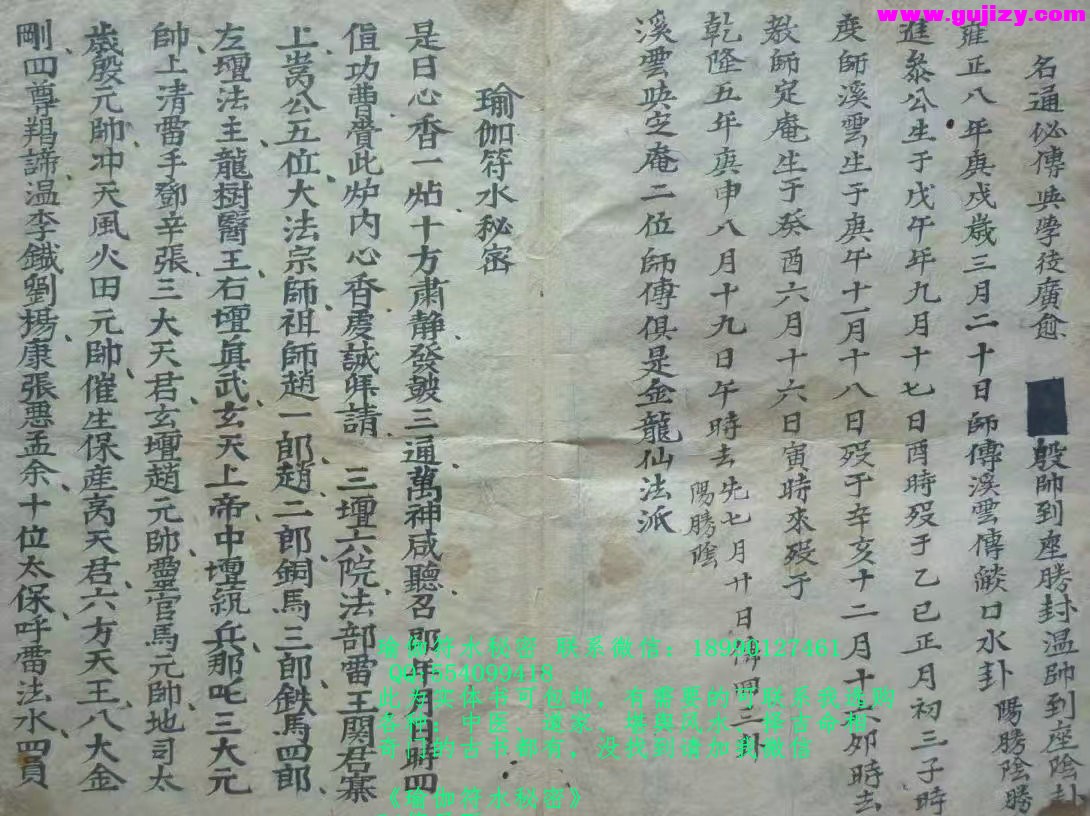 www.gujizy.com
名通必傳與學徒廣愈 殷帥到座勝封溫帥到座陰卦
雍正八年庚戍歲三月二十日師傅溪雲傳燄口水卦 陽勝陰勝
進泰公生于戊午年九月十七日酉時歿于乙巳正月初三子時
度師溪雲生于庚午十一月十八日歿于辛亥十二月十 卯時去
教師定庵生于癸酉六月十六日寅時來歿于
乾隆五年庚申八月十九日午時去先七月廿日
陽勝陰
溪雲 定庵二位師傅俱是金龍仙法派
瑜伽符水秘密
是日心香一炷十方肅静發皷三通萬神咸聽召 年 月 四
值功曹賫此炉内心香虔誠拜請 三壇六院法部雷王 君寨
上嵩公五位大法宗師祖師趙一郎趙二郎銅馬三郎鉄馬四郎
左壇法主龍樹醫王右壇真武玄天上帝中壇統兵那吒三大元
帥上清雷手鄧辛張三大天君玄壇趙元帥靈官馬元帥地司太
歲殷元帥冲天風火田元帥催生保産高天君六方天王八大金
剛四尊羯諦温李鐵劉楊康張恵孟余十位太保呼雷法水四員
瑜伽符水秘密 联系微信：18990127461
QQ:554099418
此为实体书可包邮，有需要的可联系我选购
各种：中医，道家，堪舆风水，择吉命相
奇门的古书都有，没找到请加我微信
《瑜伽符水秘密》